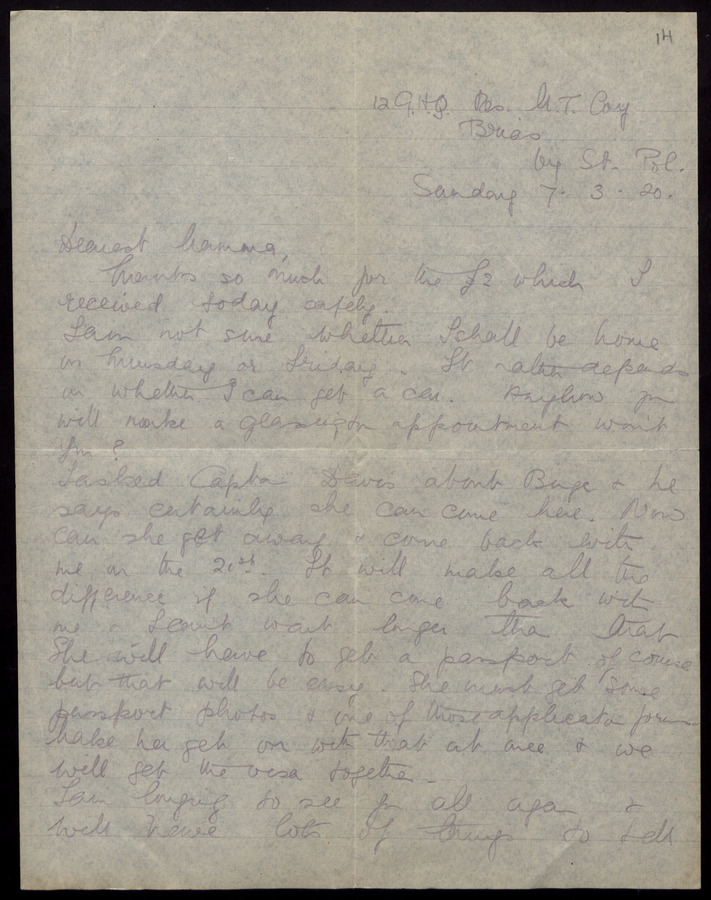 14
12 G.H.Q. Res. M.T. Coy
Brias
by St. Pol.
Sunday 7. 3. 20.
Dearest Mamma,
Thanks so much for the £2 which I
received today safely.
I am not sure whether I shall be home
on Thursday or Friday. It depends
on whether I can get a car. Anyhow you
will make a Glasgow appointment wont
you?
I asked Capta Davis about Buge & he
says certainly she can come here. Now
can she get away & come back with
me on the 21st. It will make all the
difference if she can come back with
me & I cant wait longer than that
She will have to get a passport of course
but that will be easy. She must get some
passport photos & one of those application forms
Make her get on with that at once & we
will get the visa together.
I am longing to see you all again &
will have lots of things to tell